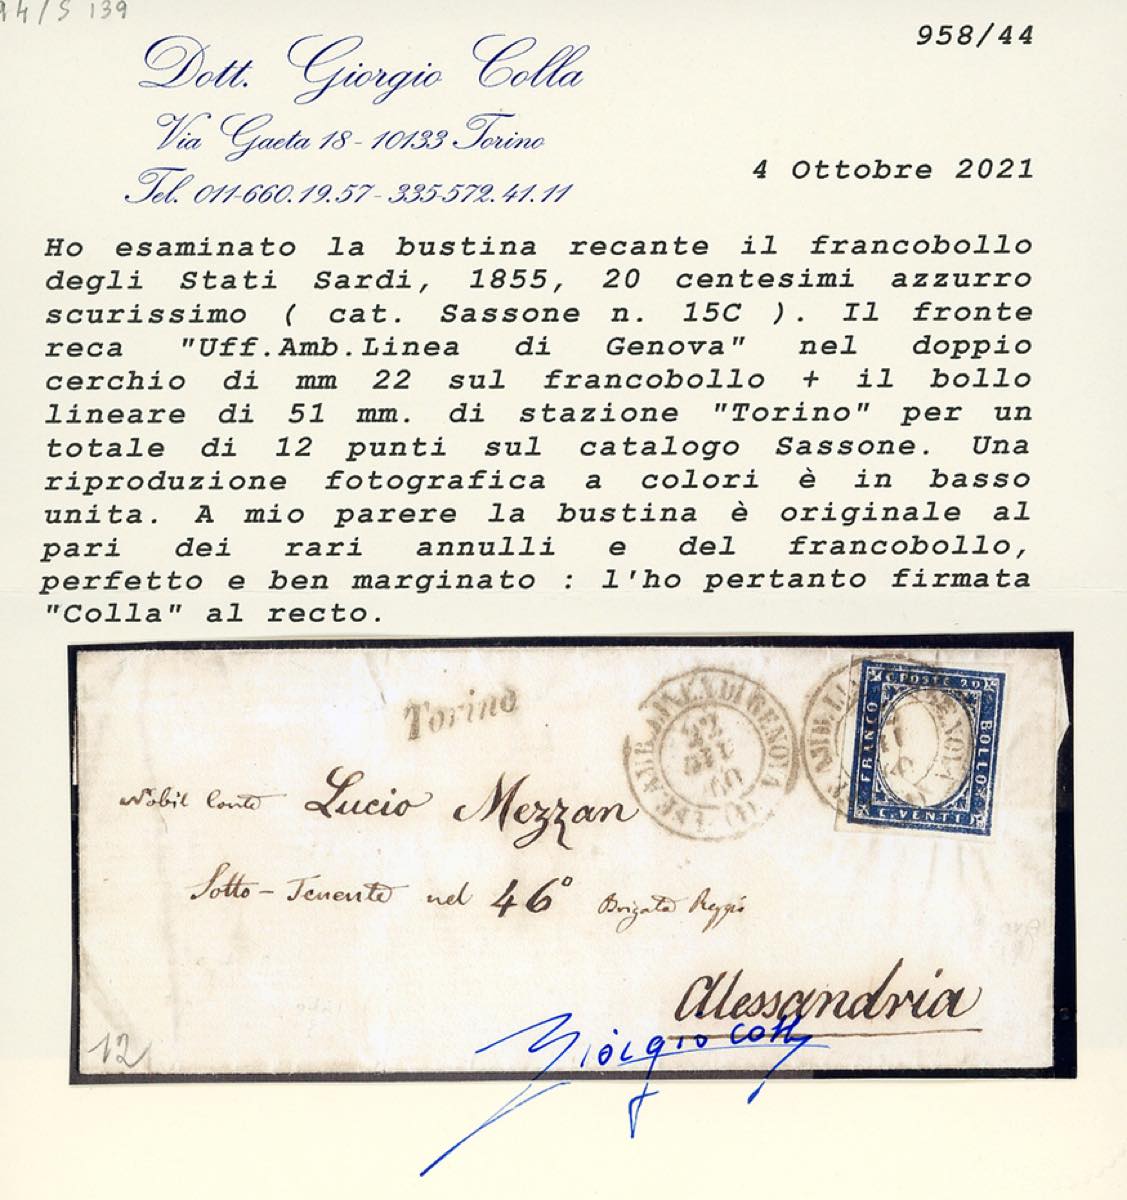 94/S 139
958/44
Dott. Giorgio Colla
Via Gaeta 18 - 10133 Torino
Tel. 011-660.19.57 - 335-572.41.11
4 Ottobre 2021
Ho esaminato la bustina recante il francobollo
degli Stati Sardi, 1855, 20 centesimi azzurro
scurissimo ( cat. Sassone n. 15C ). Il fronte
reca "Uff.Amb.Linea di Genova" nel doppio
cerchio di mm 22 sul francobollo + il bollo
lineare di 51 mm. di stazione "Torino" per un
totale di 12 punti sul catalogo Sassone. Una
riproduzione fotografica a colori è in basso
unita. A mio parere la bustina è originale al
pari dei rari annulli e del francobollo,
perfetto e ben marginato : l'ho pertanto firmata
"Colla" al recto.
Torino
C. POSTE 20
FRANCO
BOLLO
C. VENTI
Nobil Conte Lucio Mezzan
Sotto-Tenente nel 46° Brigata Reggio
Alessandria
Giorgio Colla
12